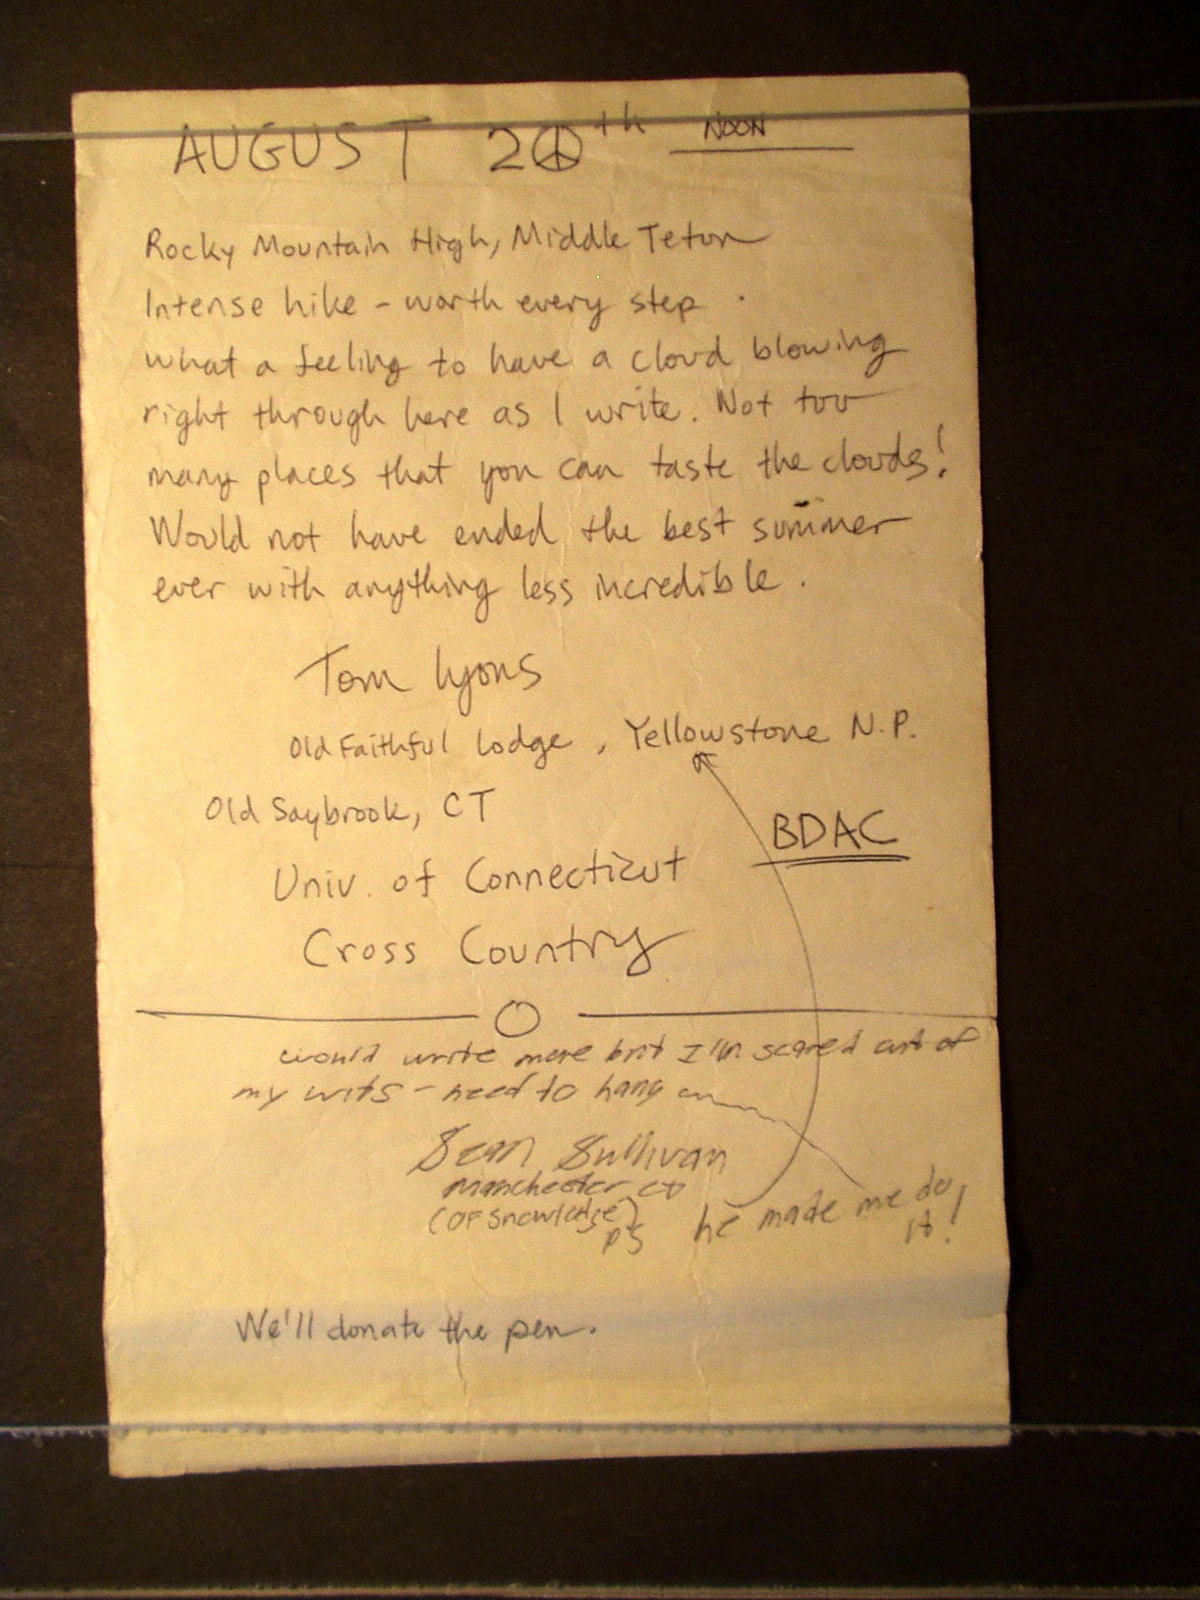 AUGUST 20th NOON
Rocky Mountain High, Middle Teton
Intense hike - worth every step.
what a feeling to have a cloud blowing
right through here as I write. Not too
many places that you can taste the clouds!
Would not have ended the best summer
ever with anything less incredible.
Tom Lyons
Old Faithful Lodge, Yellowstone N.P.
Old Saybrook, CT
BDAC
Univ. of Connecticut
Cross Country
would write more but I'm scared out of
my wits - need to hang on
Sean Sullivan
Manchester ct
(OF Snowlodge)
ps he made me do
it!
We'll donate the pen.